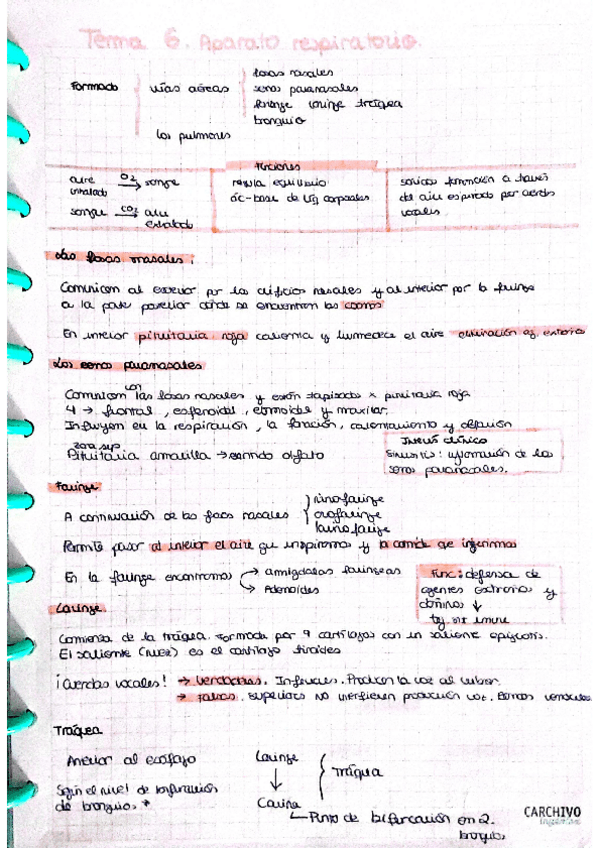 Tema 6. Aparato respiratorio.
Formado
vías aéreas
fosas nasales
senos paranasales
faringe laringe tráquea
bronquio
los pulmones
Funciones
aire inhalado O2 → sangre
sangre CO2 → aire exhalado
regula equilibrio
ác-base de líq corporales
sonidos formación a través
del aire espirado por cuerdas
vocales
Las fosas nasales.
Comunican al exterior por los orificios nasales y al interior por la faringe
a la parte posterior donde se encuentran las coanas
En interior pituitaria roja calienta y humedece el aire eliminación ag externos
Los senos paranasales
Comunican con las fosas nasales y están tapizados x pituitaria roja
4 → frontal, esfenoidal, etmoidal y maxilar.
Influyen en la respiración, la fonación, calentamiento y olfación
zona sup
Pituitaria amarilla → sentido olfato
Interés clínico
Sinusitis: inflamación de los
senos paranasales.
Faringe
A continuación de las fosas nasales
rinofaringe
orofaringe
laringofaringe
Permite pasar al interior el aire que inspiramos y la comida que ingerimos
En la faringe encontramos
→ amígdalas faríngeas
→ Adenoides
Func: defensa de
agentes extraños y
dañinos ↓
tej sist inmune
Laringe
Comienza de la tráquea. Formada por 9 cartílagos con un saliente epiglotis.
El saliente (nuez) es el cartílago tiroides
¡Cuerdas vocales! → Verdaderas. Inferiores. Producen la voz al vibrar.
→ Falsas. Superiores no interfieren producción voz. Bandas ventriculares
Tráquea
Anterior al esófago
Según el nivel de bifurcación
de bronquios. *
Laringe
↓
Carina
Tráquea
Punto de bifurcación en 2.
bronquios
CARCHIVO